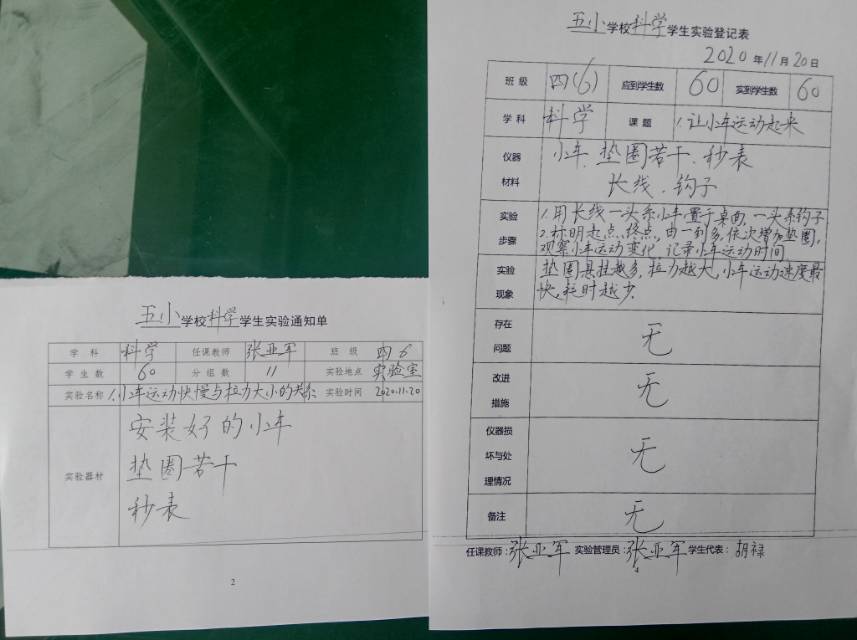 五小学校科学学生实验通知单
学科 科学 任课教师 张亚军 班级 四6
学生数 60 分组数 11 实验地点 实验室
实验名称 1.小车运动快慢与拉力大小的关系 实验时间 2020.11.20
实验器材
安装好的小车
垫圈若干
秒表
2
五小学校科学学生实验登记表
2020年11月20日
班级 四(6) 应到学生数 60 实到学生数 60
学科 科学 课题 1.让小车运动起来
仪器材料
小车、垫圈若干、秒表
长线、钩子
实验步骤
1.用长线一头系小车置于桌面,一头系钩子
2.标明起点、终点,由一到多,依次增加垫圈,
观察小车运动变化,记录小车运动时间
实验现象
垫圈悬挂越多,拉力越大,小车运动速度最
快,耗时越少.
存在问题 无
改进措施 无
仪器损坏与处理情况 无
备注 无
任课教师:张亚军 实验管理员:张亚军 学生代表:胡禄
4